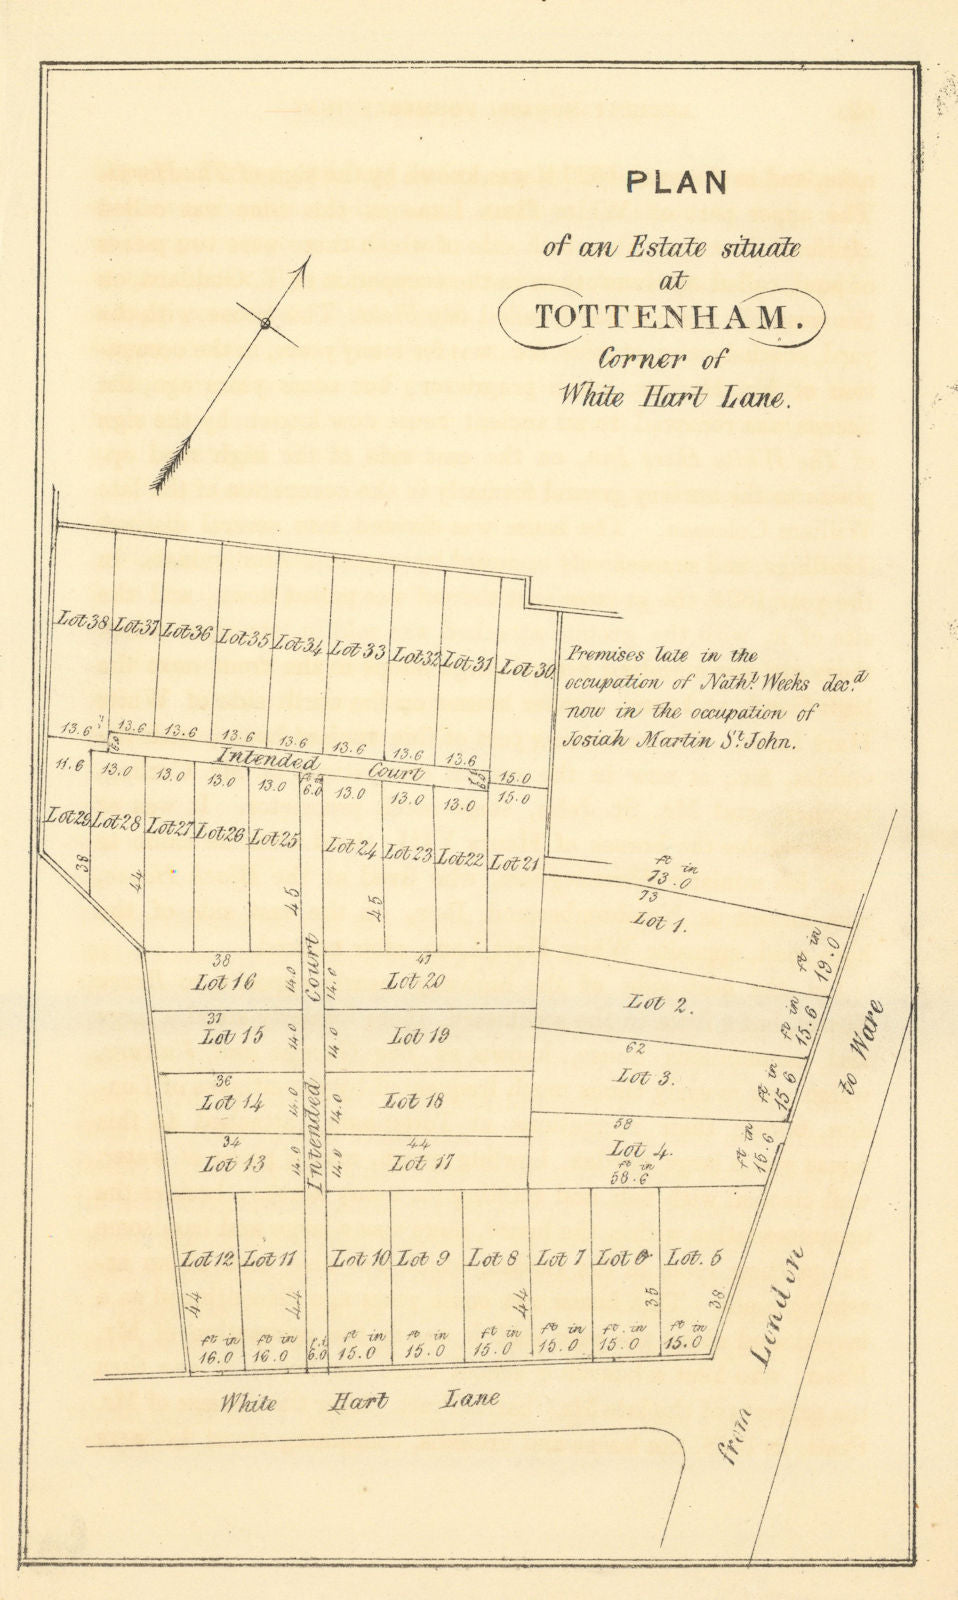 PLAN
of an Estate situate
at
TOTTENHAM.
Corner of
White Hart Lane.
Lot 38 Lot 37 Lot 36 Lot 35 Lot 34 Lot 33 Lot 32 Lot 31 Lot 30
Premises late in the
occupation of Nathl. Weeks decd.
now in the occupation of
Josiah Martin St. John.
13.6 13.6 13.6 13.6 13.6 13.6 13.6 13.6 15.0
Intended Court
11.6 13.0 13.0 13.0 13.0 6.0 13.0 13.0 13.0 15.0
Lot 29 Lot 28 Lot 27 Lot 26 Lot 25 Lot 24 Lot 23 Lot 22 Lot 21
38 44 45 45
ft in
73.0
73
Lot 1.
ft in
19.0
38 47
Lot 16 14.0 Court 14.0 Lot 20
Lot 2.
ft in
15.6
37
Lot 15 14.0 14.0 Lot 19
62
Lot 3.
ft in
15 6
36
Lot 14 14.0 Intended 14.0 Lot 18
58
Lot 4.
ft in
58.6
ft in
15.6
34 44
Lot 13 14.0 14.0 Lot 17
Lot 12 Lot 11 Lot 10 Lot 9 Lot 8 Lot 7 Lot 6 Lot. 5
44 44 44 35 38
ft in ft in ft in ft in ft in ft in ft. in ft in
16.0 16.0 6.0 15.0 15.0 15.0 15.0 15.0 15.0
White Hart Lane
from London to Ware